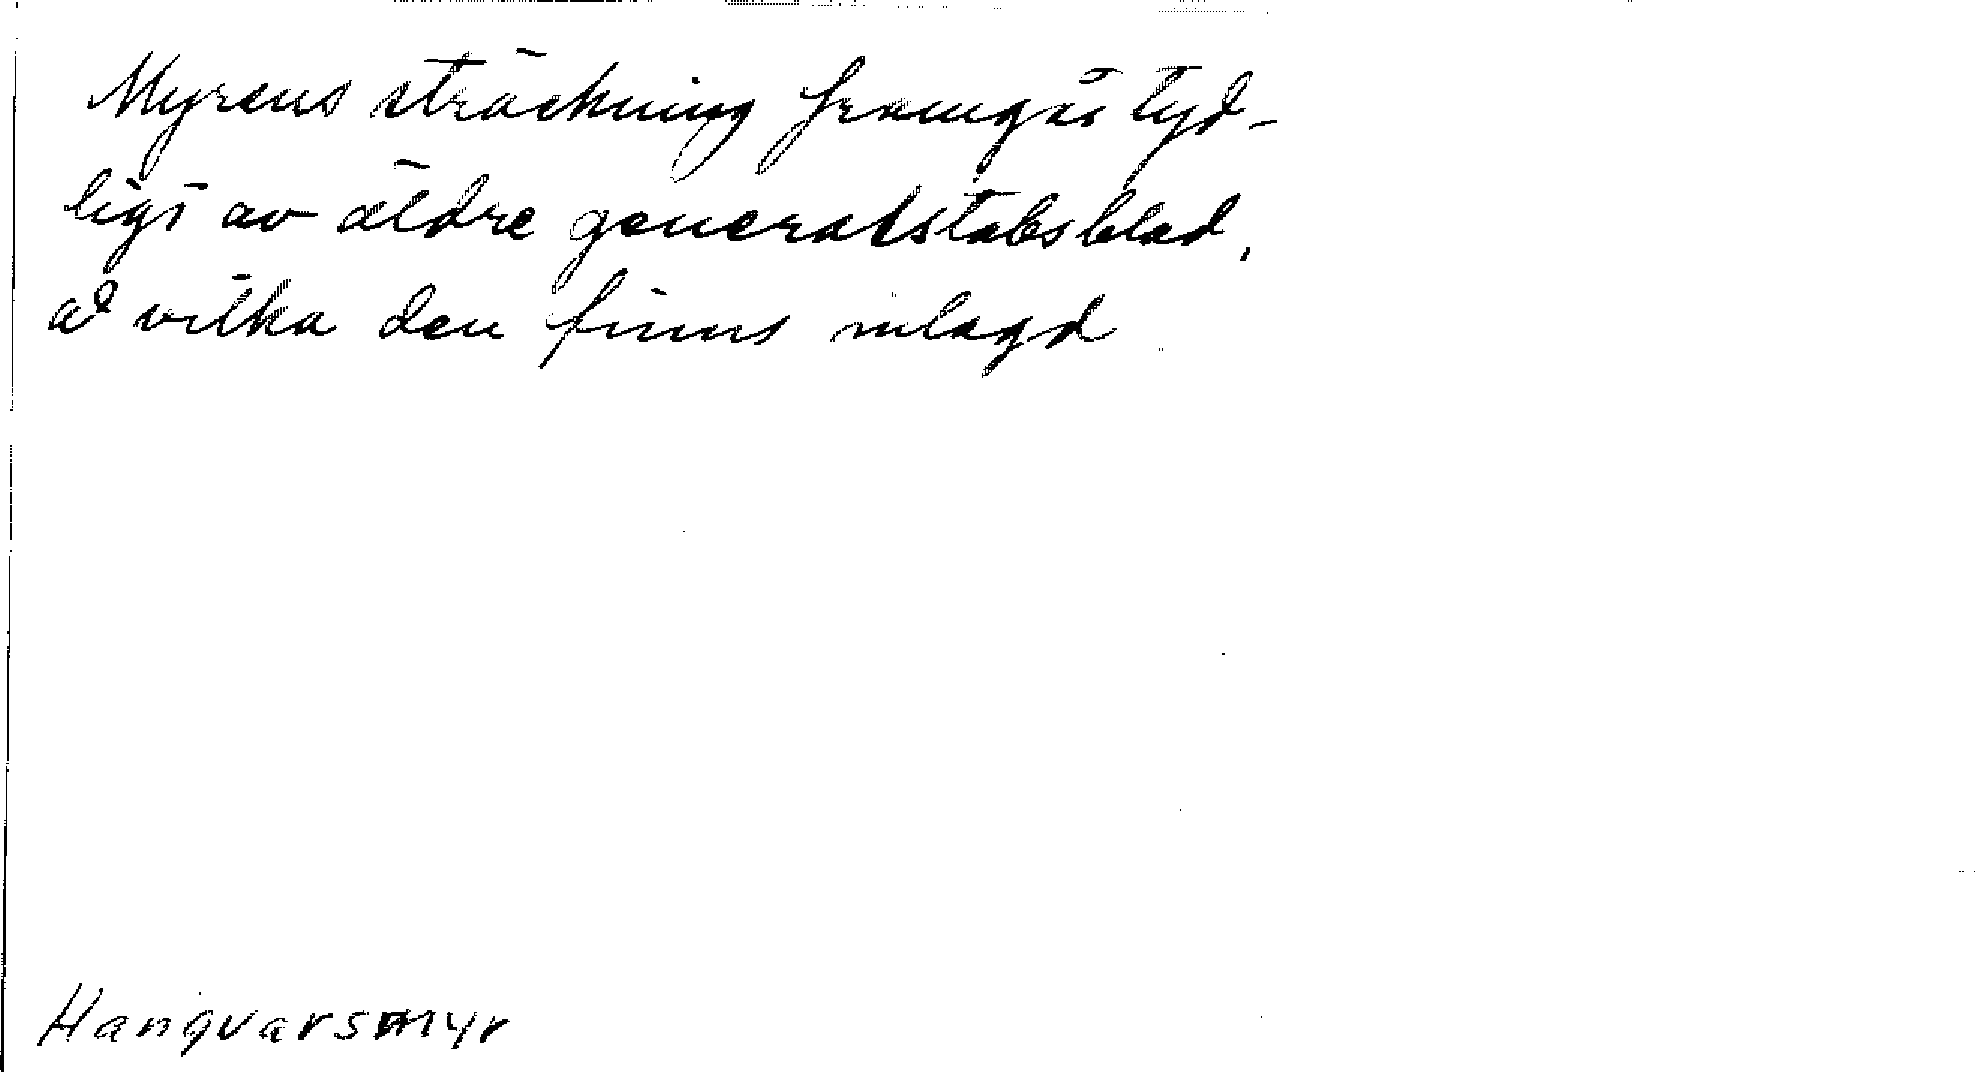 Myrens sträckning framgår tyd-
ligt av äldre generalstabsblad,
å vilka den finns inlagd
Hangvarsmyr